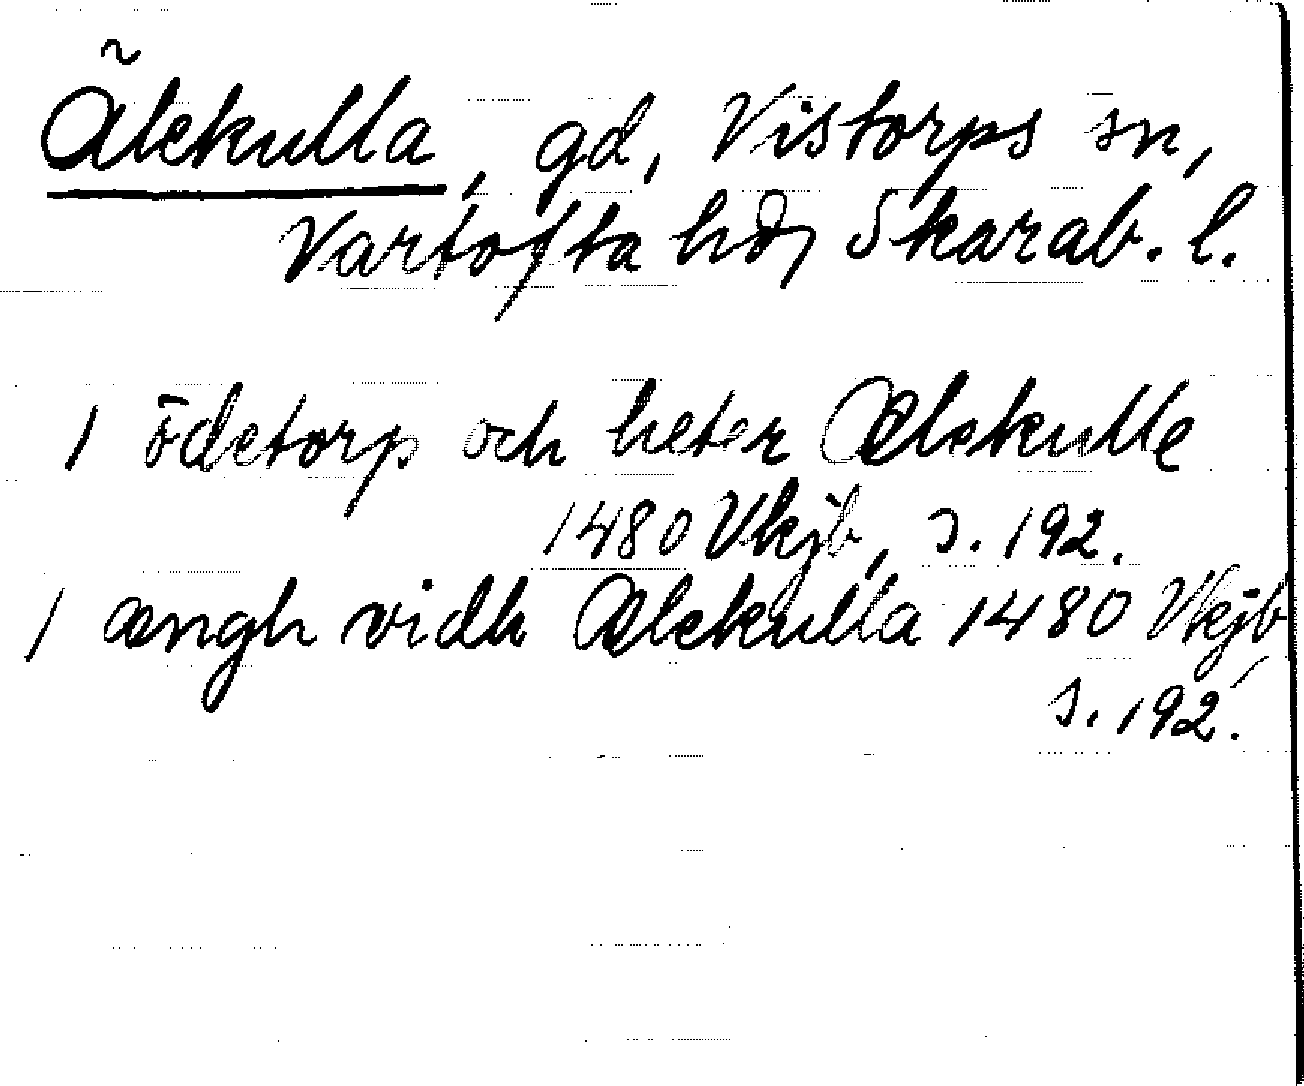 Älekulla, gd, Vistorps sn,
Vartofta hd, Skarab. l.
1 ödetorp och heter Ælekulle
1480 Vkjb, s. 192.
1 ængh vidh Ælekulla 1480 Vkjb
s. 192.